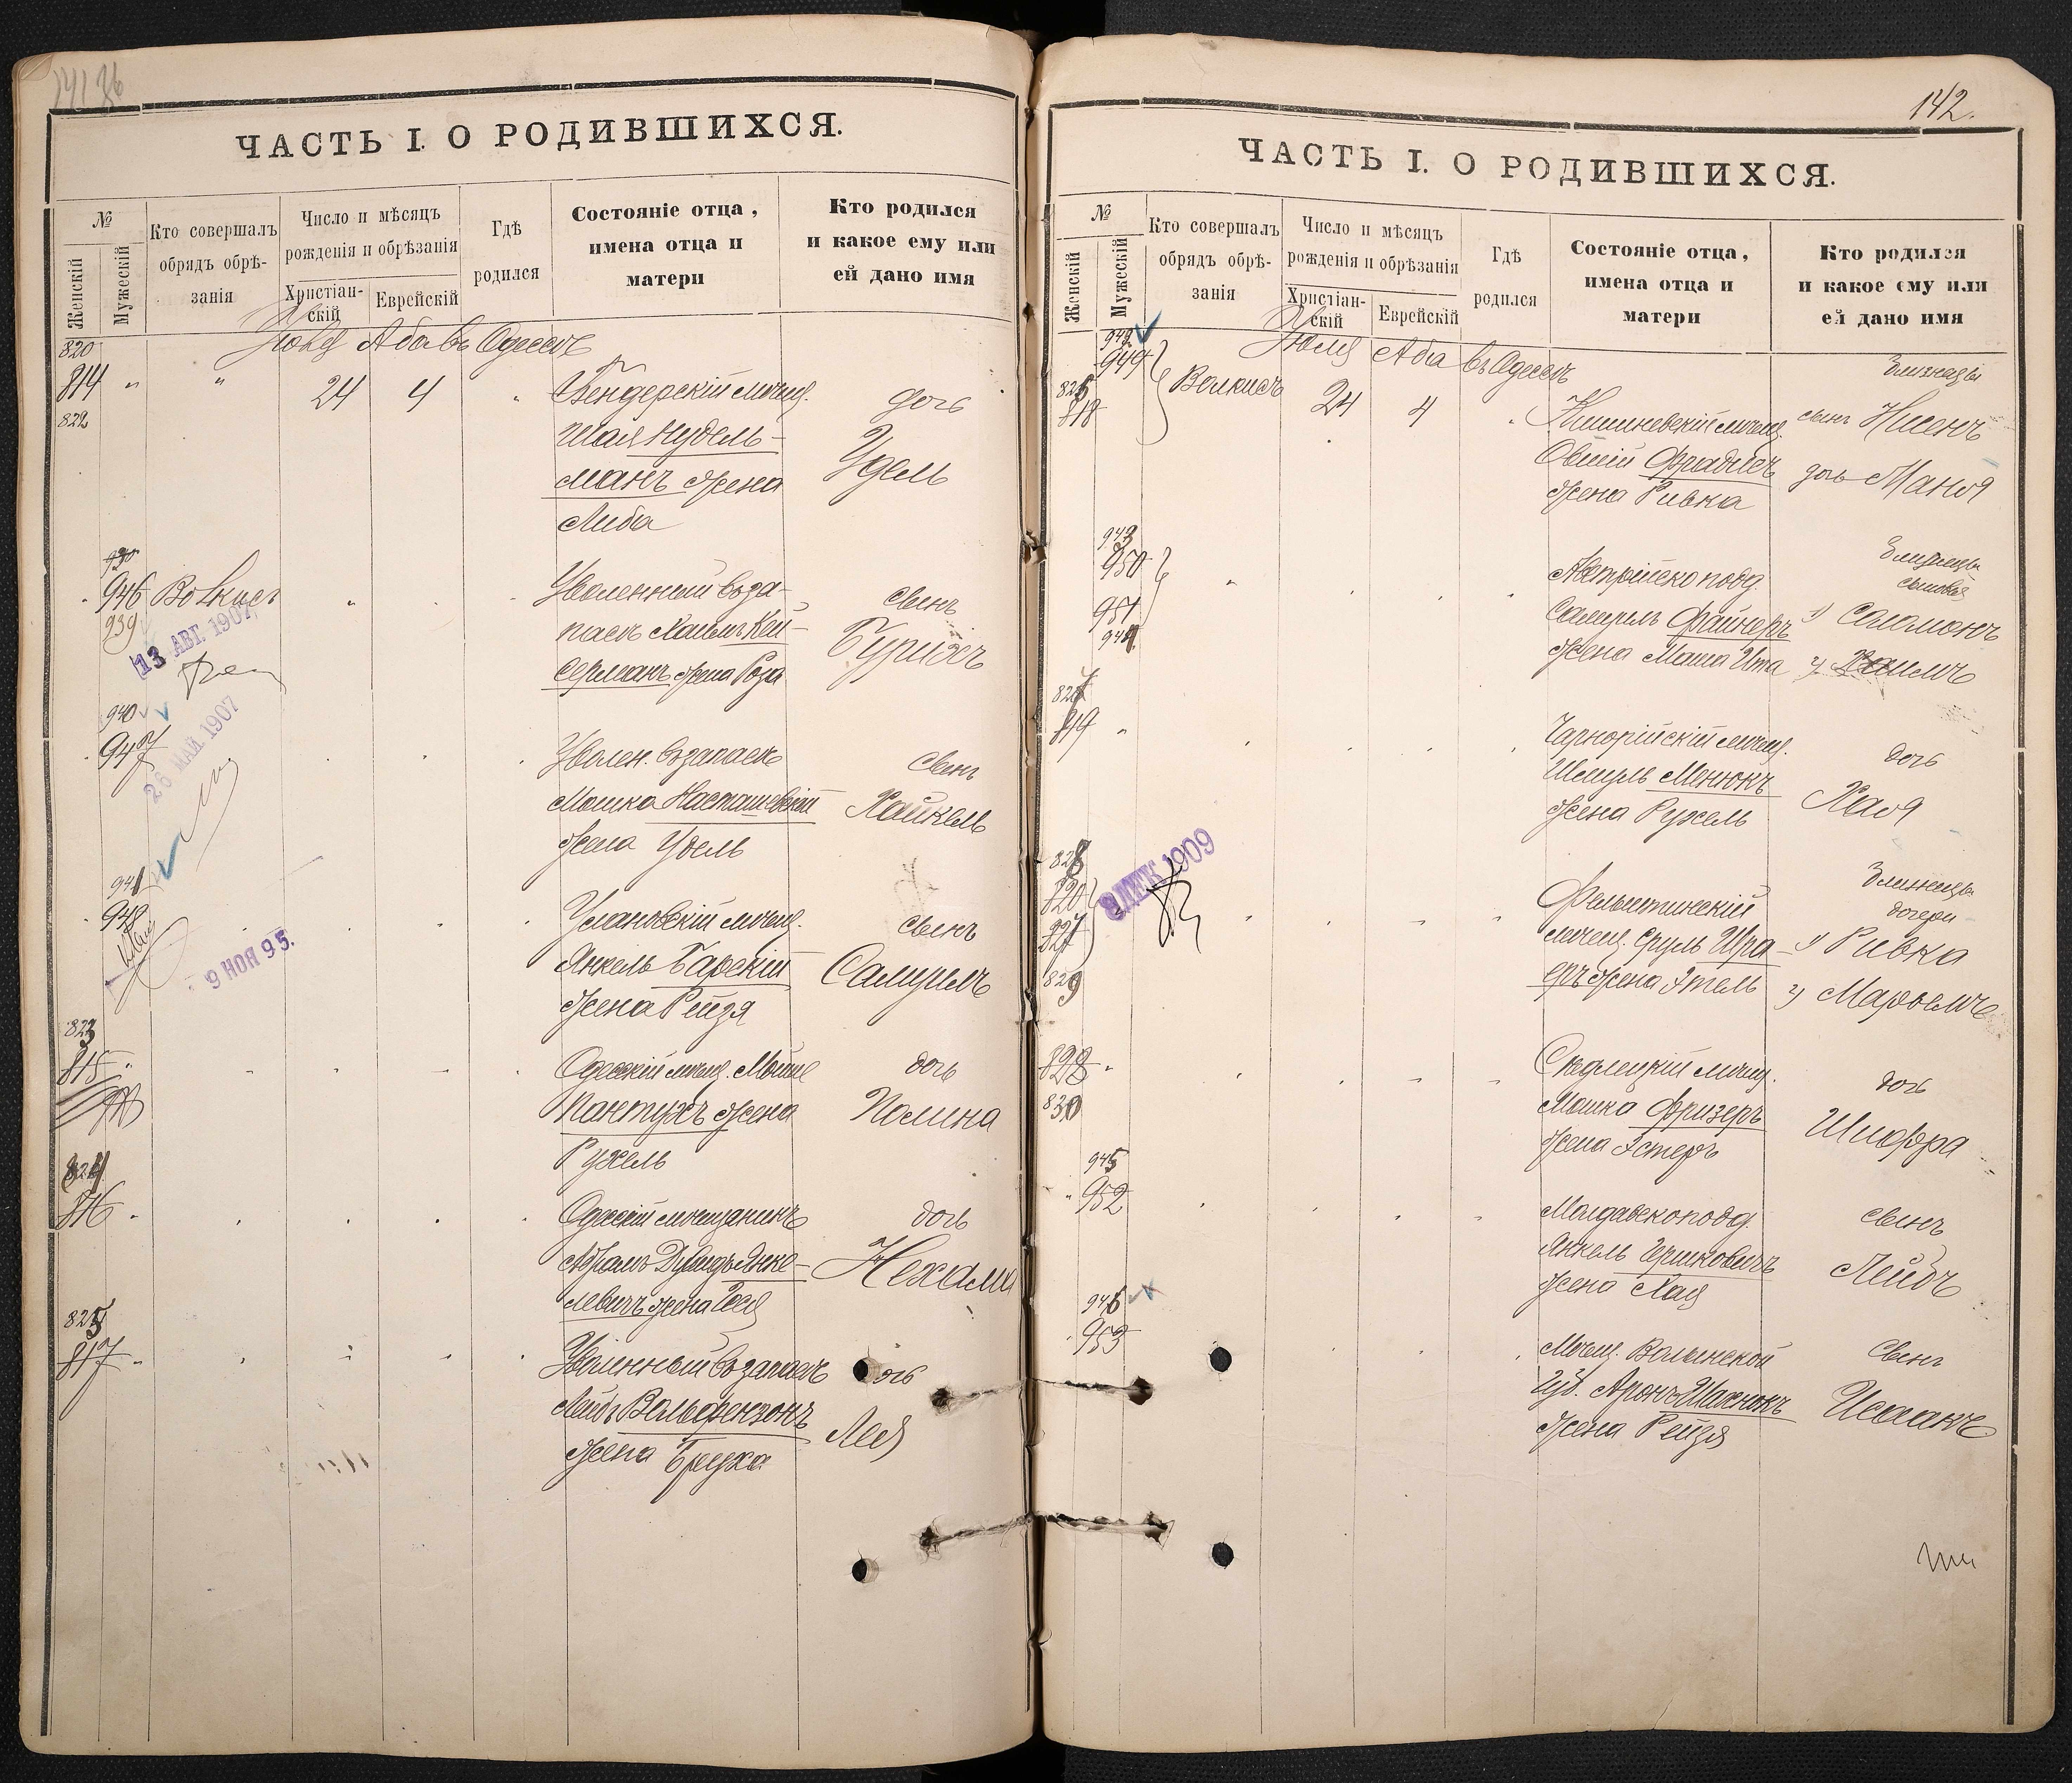 ЧАСТЬ I. О РОДИВШИХСЯ.
№
Женскій
Мужескій
Кто совершалъ
обрядъ обрѣ-
занія
Число и мѣсяцъ
рожденія и обрѣзанія
Христіан-
скій
Еврейскій
Гдѣ
родился
Состояніе отца,
имена отца и
матери
Кто родился
и какое ему или
ей дано имя
Аба въ Одессѣ
820
814 24 4 Бендерскій мѣщ. дочь
822
Шая Нудель- Удель
манъ жена
Либа
946 Волкисъ Уволенный въ за- сынъ
939
пасъ Хаимъ Кей-
серманъ жена Роза
13 АВГ. 1907
940
947 Уволен. въ запасъ сынъ
26 МАЙ 1907
Мошко Насташевскій Хайкель
жена Удель
941
948 Улановскій мѣщ. сынъ
Янкель Барскій Самуилъ
жена Рейзя
9 НОЯ 95.
823
815 Одесскій мѣщ. Мойше дочь
Пантухъ жена Полина
Рухель
824
816 Одесскій мѣщанинъ дочь
Абрамъ Дувидъ Янке- Нехама
левичъ жена
825
817 Уволенный въ запасъ дочь
Лейбъ Вольфензонъ Лея
жена Бруха
142.
ЧАСТЬ I. О РОДИВШИХСЯ.
№
Женскій
Мужескій
Кто совершалъ
обрядъ обрѣ-
занія
Число и мѣсяцъ
рожденія и обрѣзанія
Христіан-
скій
Еврейскій
Гдѣ
родился
Состояніе отца,
имена отца и
матери
Кто родился
и какое ему или
ей дано имя
Іюля Аба въ Одессѣ
949 Близнецы
826
818 Волкисъ 24 4 Кишиневскій мѣщ. сынъ Нисенъ
Овшій Фрадисъ дочь Маня
жена Ривка
943
950 Австрійско подд. Близнецы
сыновья
951 Самуилъ Файнеръ 1) Соломонъ
944
жена Маша Ита 2) Хаимъ
827
819 Чарнорійскій мѣщ. дочь
Шмуль Менюкъ Хая
жена Рухель
828
820 Близнецы
дочери
827 мѣщ. Сруль Шра- 1) Ривка
829 еръ жена Этель 2)
8 ДЕК 1909
828 Сѣдлецкій мѣщ. дочь
830 Мошко Фризеръ Шифра
жена Эстеръ
945
952 Молдавскоподд. сынъ
Янкель Гершковичъ Лейбъ
жена Хая
946
953 Мѣщ. Волынской сынъ
губ. Аронъ Шахнокъ Исаакъ
жена Рейзя